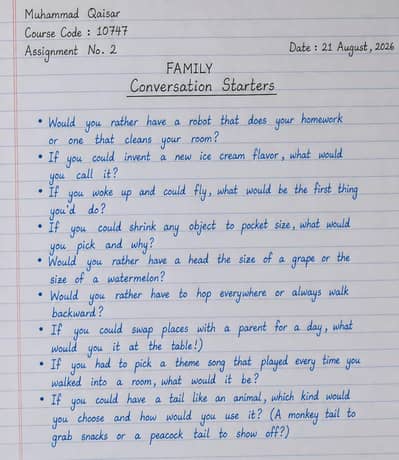 Muhammad Qaisar
Course Code : 10747
Assignment No. 2
Date : 21 August, 2026
FAMILY
Conversation Starters
• Would you rather have a robot that does your homework
or one that cleans your room?
• If you could invent a new ice cream flavor, what would
you call it?
• If you woke up and could fly, what would be the first thing
you'd do?
• If you could shrink any object to pocket size, what would
you pick and why?
• Would you rather have a head the size of a grape or the
size of a watermelon?
• Would you rather have to hop everywhere or always walk
backward?
• If you could swap places with a parent for a day, what
would you it at the table!)
• If you had to pick a theme song that played every time you
walked into a room, what would it be?
• If you could have a tail like an animal, which kind would
you choose and how would you use it? (A monkey tail to
grab snacks or a peacock tail to show off?)